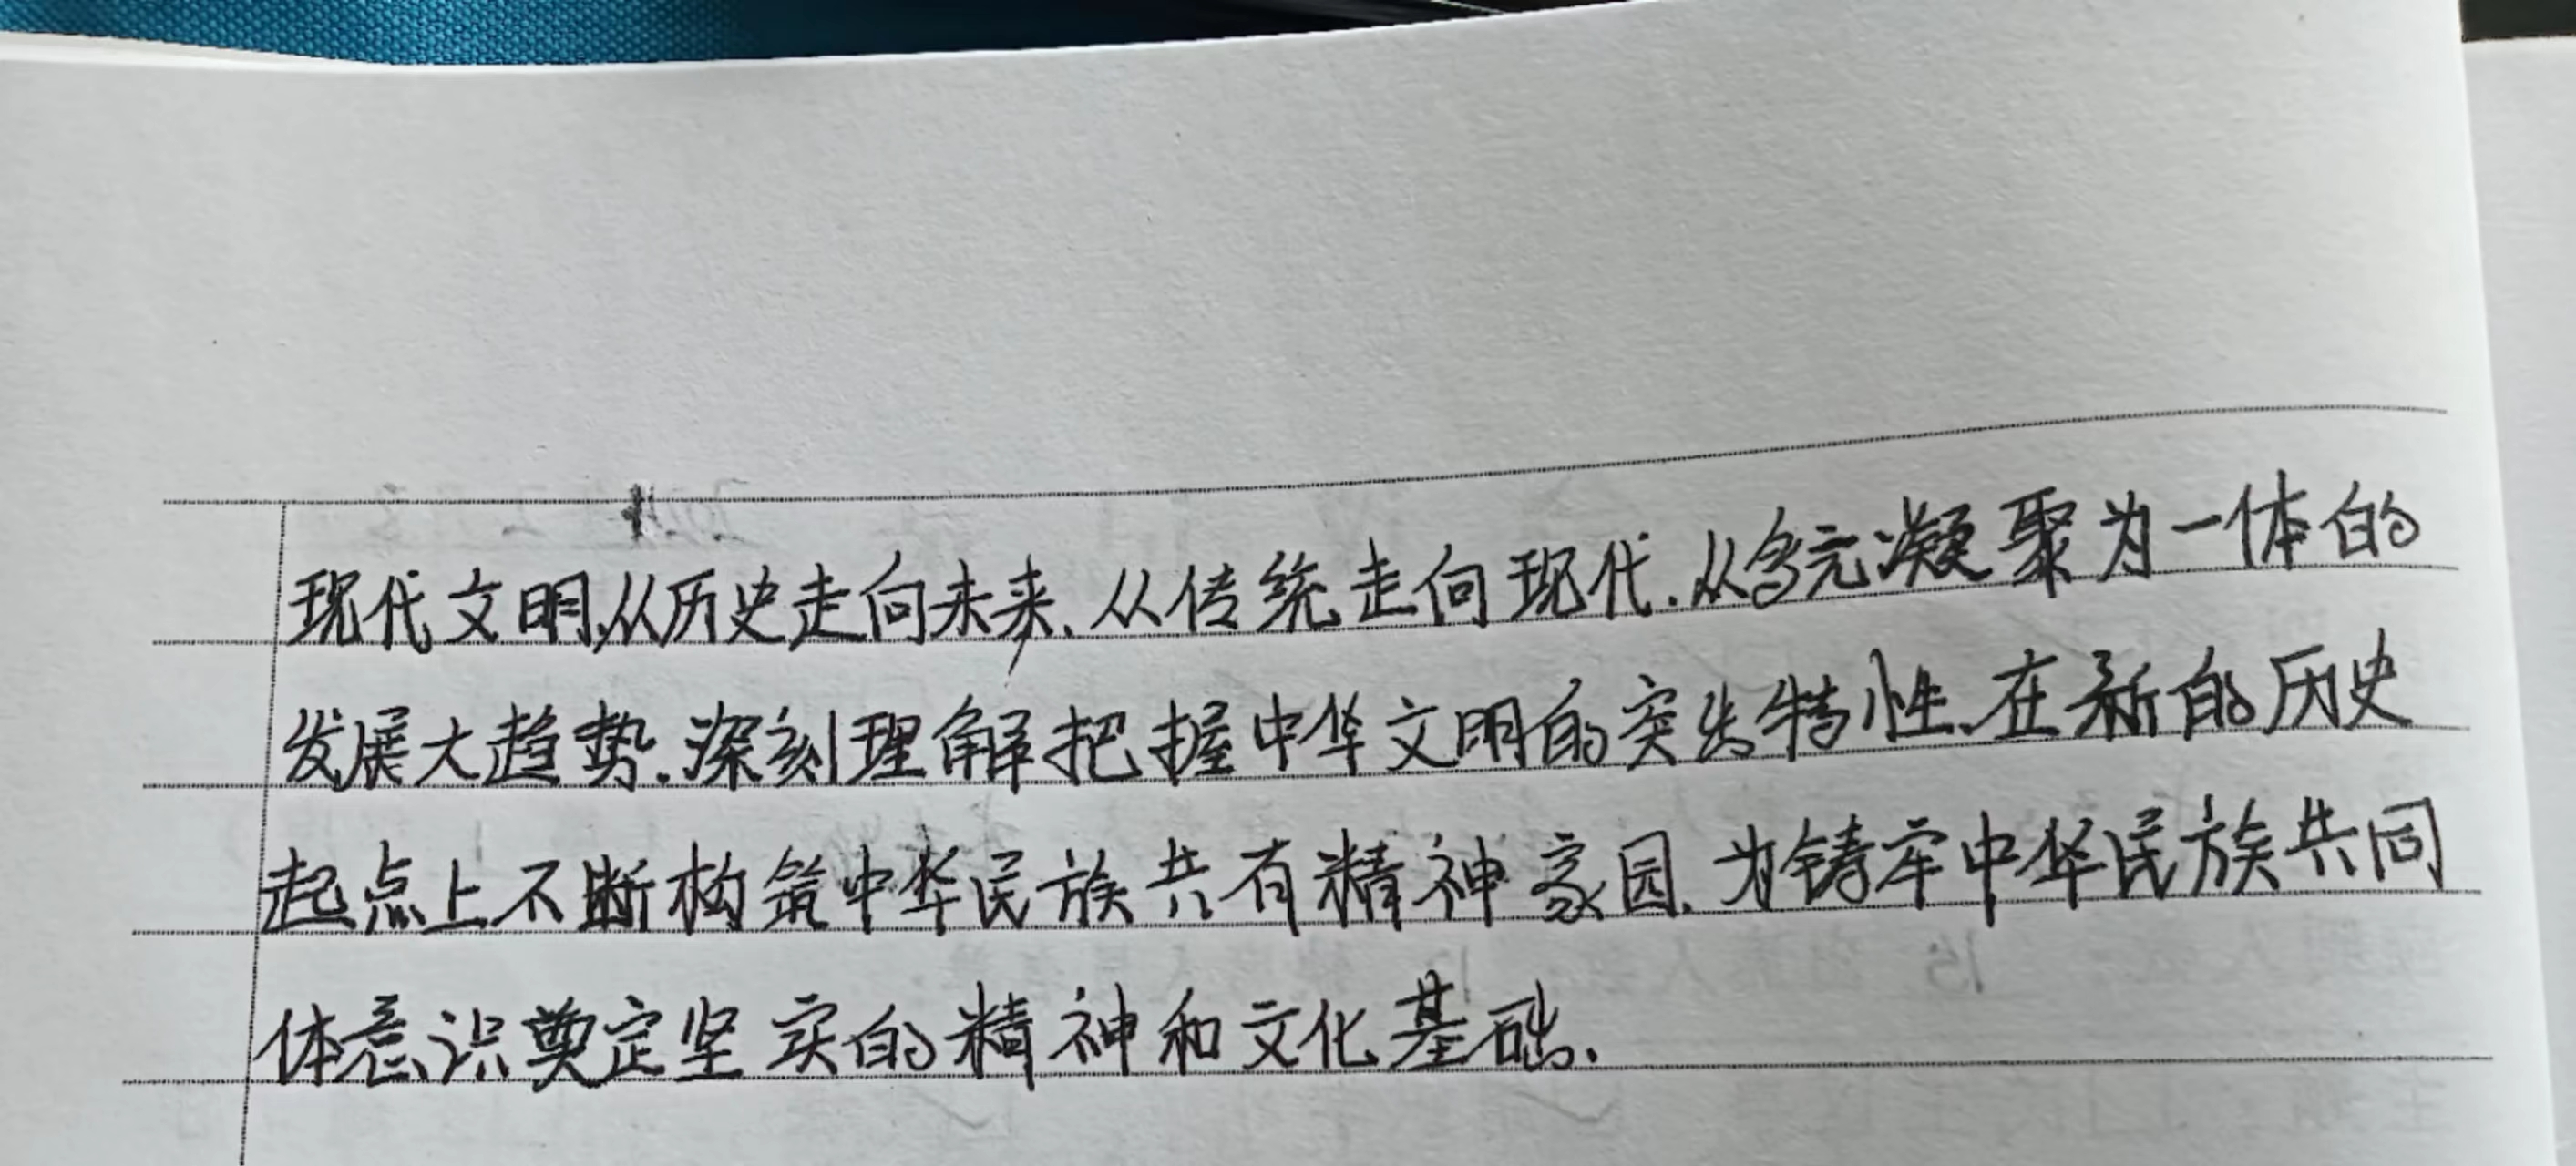 现代文明,从历史走向未来、从传统走向现代、从多元凝聚为一体的
发展大趋势.深刻理解把握中华文明的突出特性、在新的历史
起点上不断构筑中华民族共有精神家园、为铸牢中华民族共同
体意识奠定坚实的精神和文化基础.